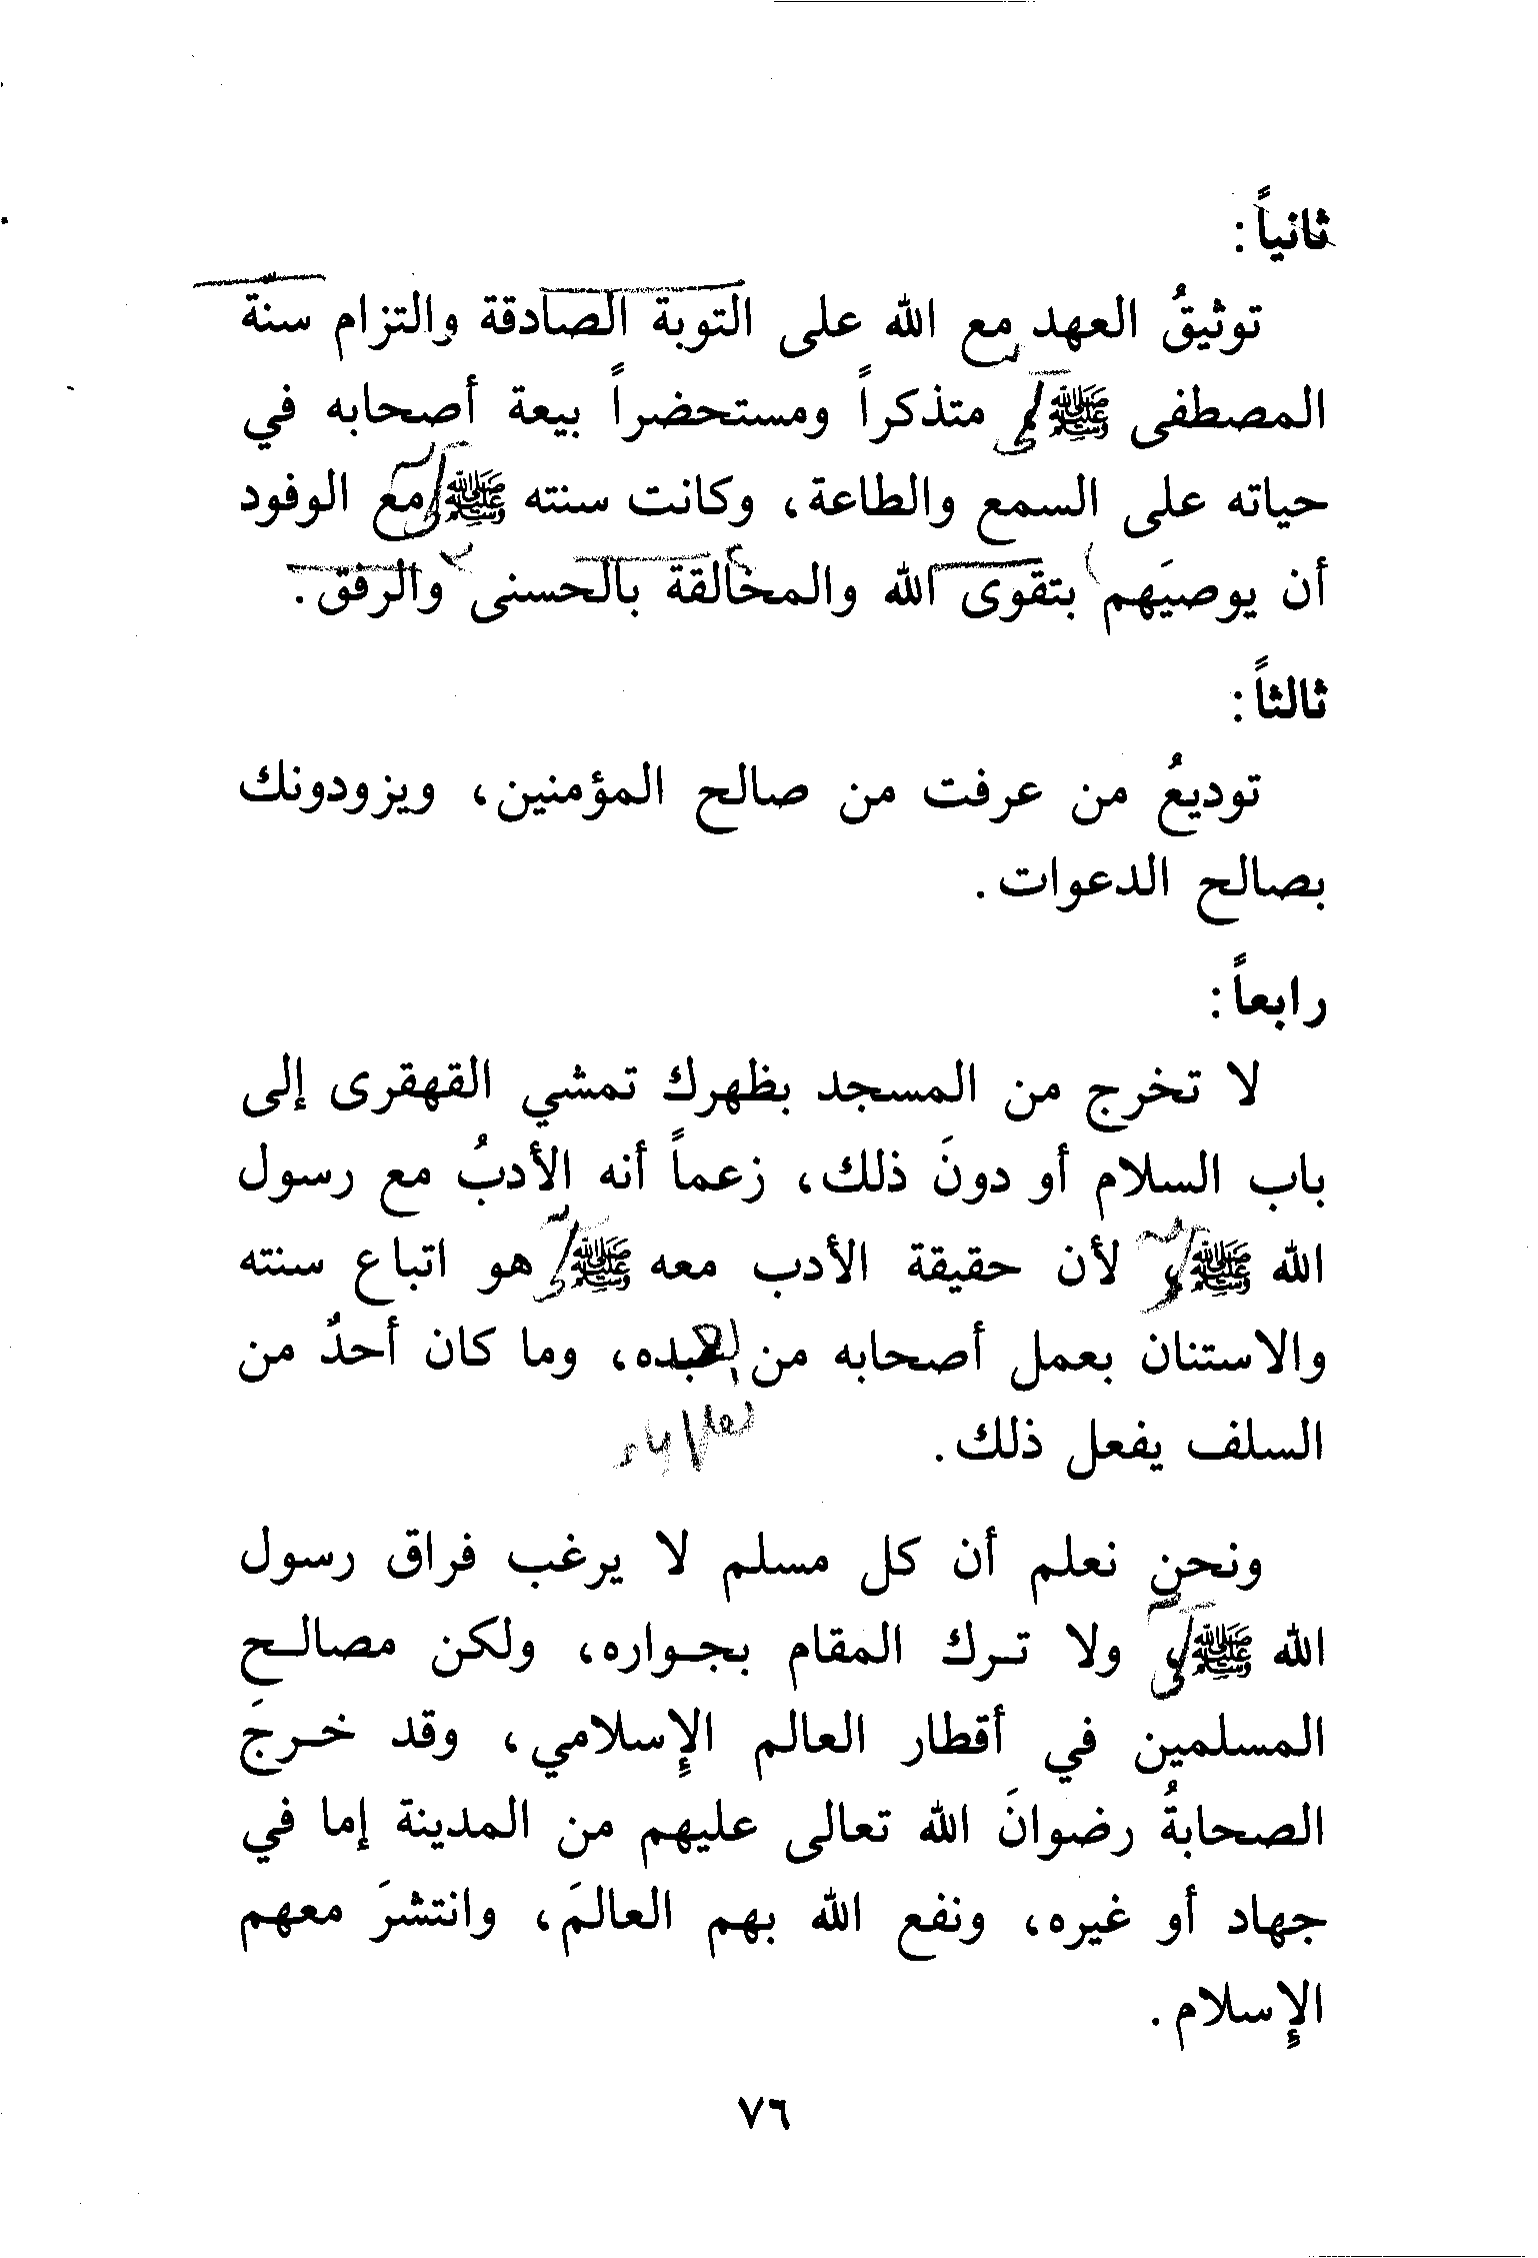 ثانياً:
توثيقُ العهد مع الله على التوبة الصادقة والتزام سنة
المصطفى ﷺ متذكراً ومستحضراً بيعة أصحابه في
حياته على السمع والطاعة، وكانت سنته ﷺ مع الوفود
أن يوصيَهم بتقوى الله والمخالقة بالحسنى والرفق.
ثالثاً:
توديعُ من عرفت من صالح المؤمنين، ويزودونك
بصالح الدعوات.
رابعاً:
لا تخرج من المسجد بظهرك تمشي القهقرى إلى
باب السلام أو دونَ ذلك، زعماً أنه الأدبُ مع رسول
الله ﷺ لأن حقيقة الأدب معه ﷺ هو اتباع سنته
والاستنان بعمل أصحابه من بعده، وما كان أحدٌ من
السلف يفعل ذلك.
ونحن نعلم أن كل مسلم لا يرغب فراق رسول
الله ﷺ ولا تـرك المقام بجـواره، ولكن مصالـح
المسلمين في أقطار العالم الإسلامي، وقد خـرجَ
الصحابةُ رضوانَ الله تعالى عليهم من المدينة إما في
جهاد أو غيره، ونفع الله بهم العالمَ، وانتشرَ معهم
الإسلام.
٧٦